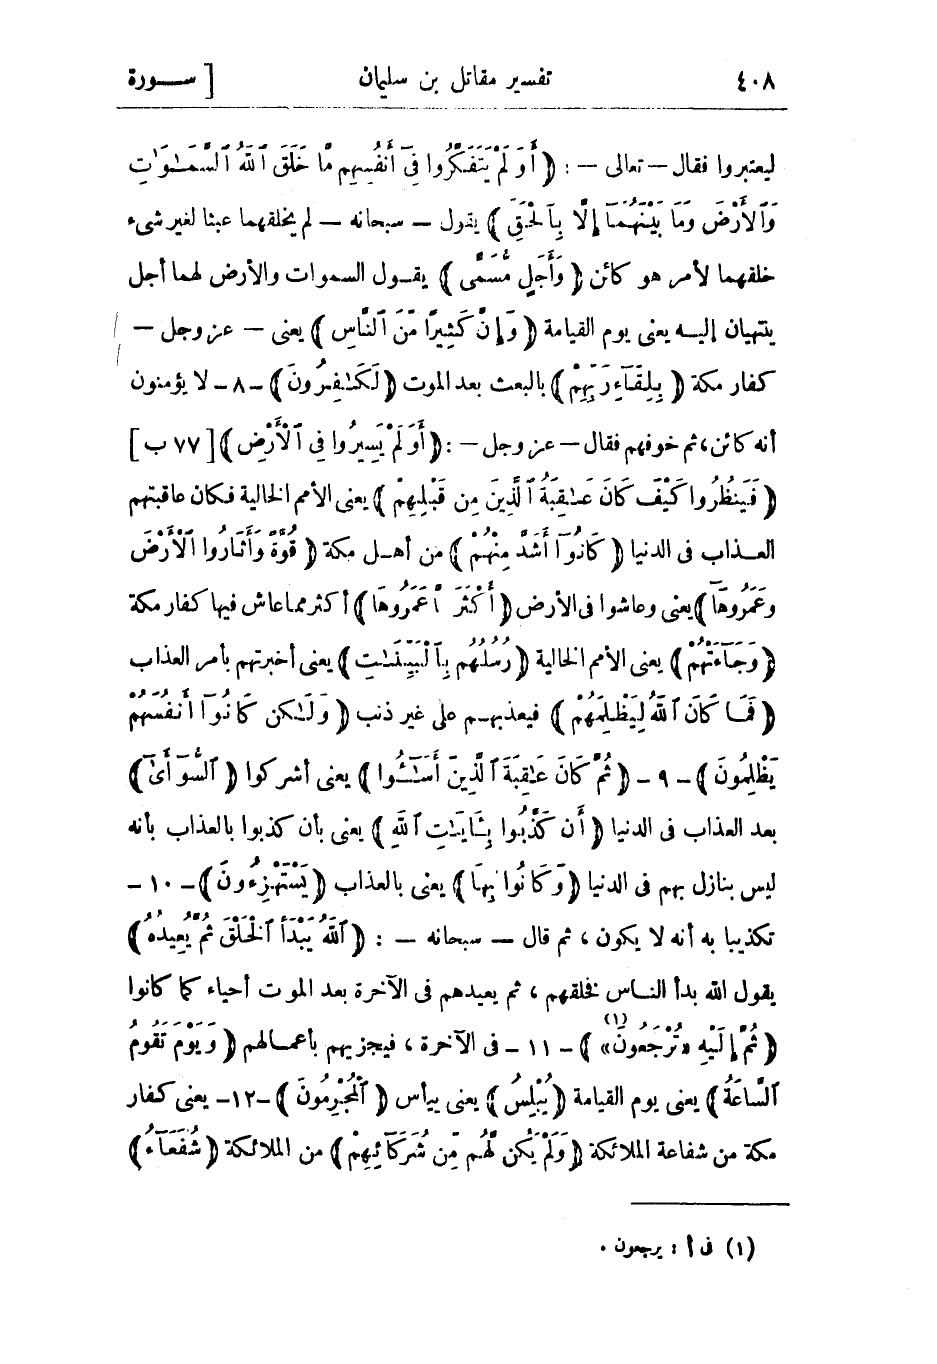 ٤٠٨ تفسير مقاتل بن سليمان [ ســورة
ليعتبروا فقال — تعالى — : ﴿ أَوَ لَمْ يَتَفَكَّرُوا فِىٓ أَنفُسِهِم مَّا خَلَقَ ٱللَّهُ ٱلسَّمَـٰوَٰتِ
وَٱلْأَرْضَ وَمَا بَيْنَهُمَآ إِلَّا بِٱلْحَقِّ ﴾ يقول — سبحانه — لم يخلقهما عبثا لغير شىء
خلقهما لأمر هو كائن ﴿ وَأَجَلٍ مُّسَمًّى ﴾ يقـول السموات والأرض لهما أجل
ينتهيان إليـه يعنى يوم القيامة ﴿ وَإِنَّ كَثِيرًا مِّنَ ٱلنَّاسِ ﴾ يعنى — عز وجل —
كفار مكة ﴿ بِلِقَآءِ رَبِّهِمْ ﴾ بالبعث بعد الموت ﴿ لَكَـٰفِرُونَ ﴾ - ٨ - لا يؤمنون
أنه كائن، ثم خوفهم فقال — عز وجل — : ﴿ أَوَلَمْ يَسِيرُوا فِى ٱلْأَرْضِ ﴾ [ ٧٧ ب ]
﴿ فَيَنظُرُوا كَيْفَ كَانَ عَـٰقِبَةُ ٱلَّذِينَ مِن قَبْلِهِمْ ﴾ يعنى الأمم الخالية فكان عاقبتهم
العـذاب فى الدنيا ﴿ كَانُوٓا أَشَدَّ مِنْهُمْ ﴾ من أهـل مكة ﴿ قُوَّةً وَأَثَارُوا ٱلْأَرْضَ
وَعَمَرُوهَآ ﴾ يعنى وعاشوا فى الأرض ﴿ أَكْثَرَ مِمَّا عَمَرُوهَا ﴾ أكثر مما عاش فيها كفار مكة
﴿ وَجَآءَتْهُمْ ﴾ يعنى الأمم الخالية ﴿ رُسُلُهُم بِٱلْبَيِّنَـٰتِ ﴾ يعنى أخبرتهم بأمر العذاب
﴿ فَمَا كَانَ ٱللَّهُ لِيَظْلِمَهُمْ ﴾ فيعذبهـم على غير ذنب ﴿ وَلَـٰكِن كَانُوٓا أَنفُسَهُمْ
يَظْلِمُونَ ﴾ - ٩ - ﴿ ثُمَّ كَانَ عَـٰقِبَةَ ٱلَّذِينَ أَسَـٰٓـُٔوا ﴾ يعنى أشركوا ﴿ ٱلسُّوٓأَىٰٓ ﴾
بعد العذاب فى الدنيا ﴿ أَن كَذَّبُوا بِـَٔايَـٰتِ ٱللَّهِ ﴾ يعنى بأن كذبوا بالعذاب بأنه
ليس بنازل بهم فى الدنيا ﴿ وَكَانُوا بِهَا ﴾ يعنى بالعذاب ﴿ يَسْتَهْزِءُونَ ﴾ - ١٠ -
تكذيبا به أنه لا يكون ، ثم قال — سبحانه — : ﴿ ٱللَّهُ يَبْدَأُ ٱلْخَلْقَ ثُمَّ يُعِيدُهُ ﴾
يقول الله بدأ النـاس فخلقهم ، ثم يعيدهم فى الآخرة بعد الموت أحياء كما كانوا
﴿ ثُمَّ إِلَيْهِ «تُرْجَعُونَ»(١) ﴾ - ١١ - فى الآخرة ، فيجزيهم بأعمـالهم ﴿ وَيَوْمَ تَقُومُ
ٱلسَّاعَةُ ﴾ يعنى يوم القيامة ﴿ يُبْلِسُ ﴾ يعنى ييأس ﴿ ٱلْمُجْرِمُونَ ﴾ - ١٢ - يعنى كفار
مكة من شفاعة الملائكة ﴿ وَلَمْ يَكُن لَّهُم مِّن شُرَكَآئِهِمْ ﴾ من الملائكة ﴿ شُفَعَـٰٓؤُا ﴾
(١) فى أ : يرجعون .